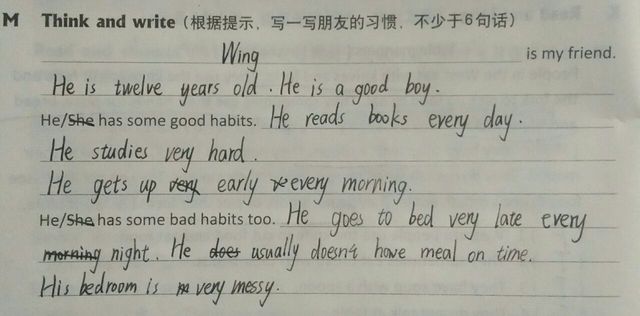 M Think and write (根据提示，写一写朋友的习惯，不少于6句话)
Wing is my friend.
He is twelve years old. He is a good boy.
He/She has some good habits. He reads books every day.
He studies very hard.
He gets up very early every morning.
He/She has some bad habits too. He goes to bed very late every
morning night. He does usually doesn't have meal on time.
His bedroom is very messy.